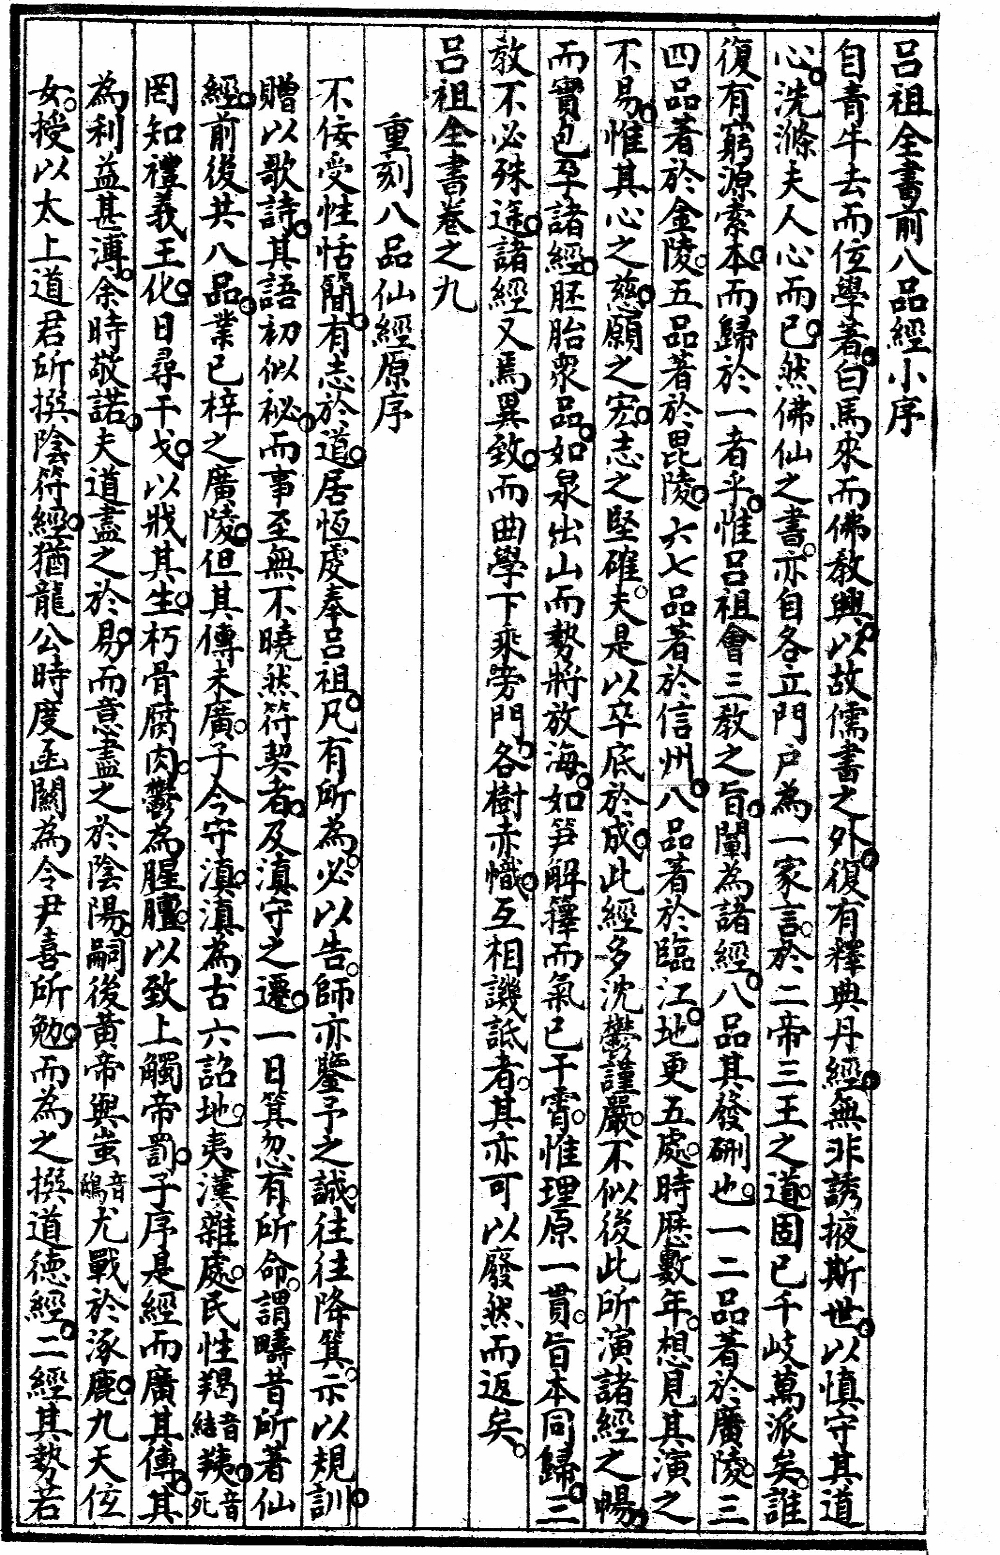 呂祖全書前八品經小序
自青牛去而位學著白馬來而佛教興以故儒書之外復有釋典丹經無非誘掖斯世以慎守其道
心洗滌夫人心而已然佛仙之書亦自各立門户為一家言於二帝三王之道固已千岐萬派矣誰
復有窮源索本而歸於一者乎惟呂祖會三教之旨闡為諸經八品其發硎也一二品著於廣陵三
四品著於金陵五品著於毘陵六七品著於信州八品著於臨江地更五處時歷數年想見其演之
不易惟其心之慈願之宏志之堅確夫是以卒底於成此經多沈鬱謹嚴不似後此所演諸經之暢
而實包孕諸經胚胎衆品如泉出山而勢將放海如笋解籜而氣已干霄惟理原一貫旨本同歸三
教不必殊途諸經又焉異致而曲學下乘旁門各樹赤幟互相譏詆者其亦可以廢然而返矣
呂祖全書卷之九
重刻八品仙經原序
不佞受性恬簡有志於道居恆處奉呂祖凡有所為必以告師亦鑒予之誠往往降箕示以規訓
贈以歌詩其語初似祕而事至無不曉然符契者及滇守之遷一日箕忽有所命謂疇昔所著仙
經前後共八品業已梓之廣陵但其傳未廣子今守滇滇為古六詔地夷漢雜處民性羯音結羠音死
罔知禮義王化日尋干戈以戕其生朽骨腐肉鬱為腥膻以致上觸帝罰子序是經而廣其傳其
為利益甚溥余時敬諾夫道盡之於易而意盡之於陰陽嗣後黃帝與蚩音鴟尤戰於涿鹿九天位
女授以太上道君所撰陰符經猶龍公時度函關為令尹喜所勉而為之撰道德經二經其勢若